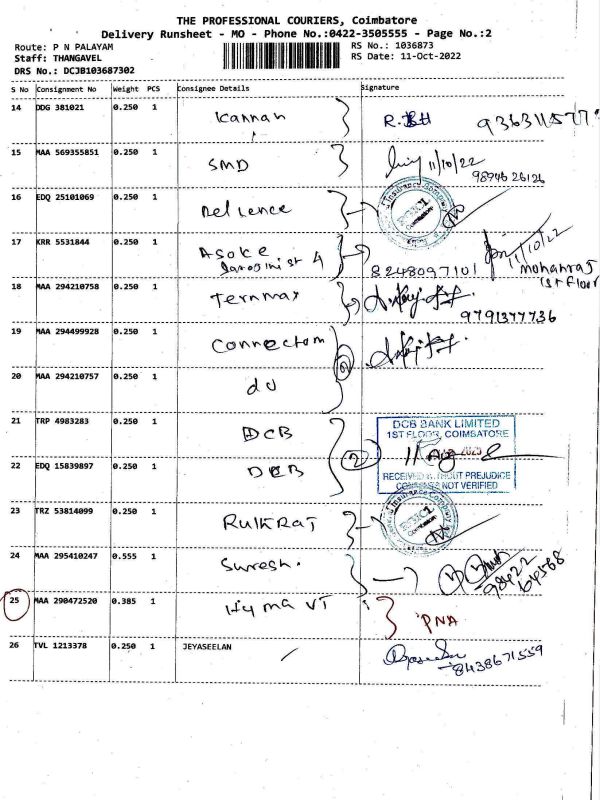 THE PROFESSIONAL COURIERS, Coimbatore
Delivery Runsheet - MO - Phone No.:0422-3505555 - Page No.:2
Route: P N PALAYAM RS No.: 1036873
Staff: THANGAVEL RS Date: 11-Oct-2022
DRS No.: DCJB103687302
S No Consignment No Weight PCS Consignee Details Signature
14 DDG 381021 0.250 1 Kannan
15 MAA 569355851 0.250 1 SMD 11/10/22
9894626126
16 EDQ 25101069 0.250 1 Relience
17 KRR 5531844 0.250 1 Asoke 11/10/22
8248097101 mohanraj
1st Floor
18 MAA 294210758 0.250 1 Termmax
9791377736
19 MAA 294499928 0.250 1 Connectom
20 MAA 294210757 0.250 1 do
21 TRP 4983283 0.250 1 DCB
DCB BANK LIMITED
1ST FLOOR, COIMBATORE
22 EDQ 15839897 0.250 1 DCB 2
RECEIVED WITHOUT PREJUDICE
CONTENTS NOT VERIFIED
23 TRZ 53814099 0.250 1 RUIKRAJ
24 MAA 295410247 0.555 1 Suresh.
98422
25 MAA 290472520 0.385 1 Hyma VT PNA
26 TVL 1213378 0.250 1 JEYASEELAN
8438671559